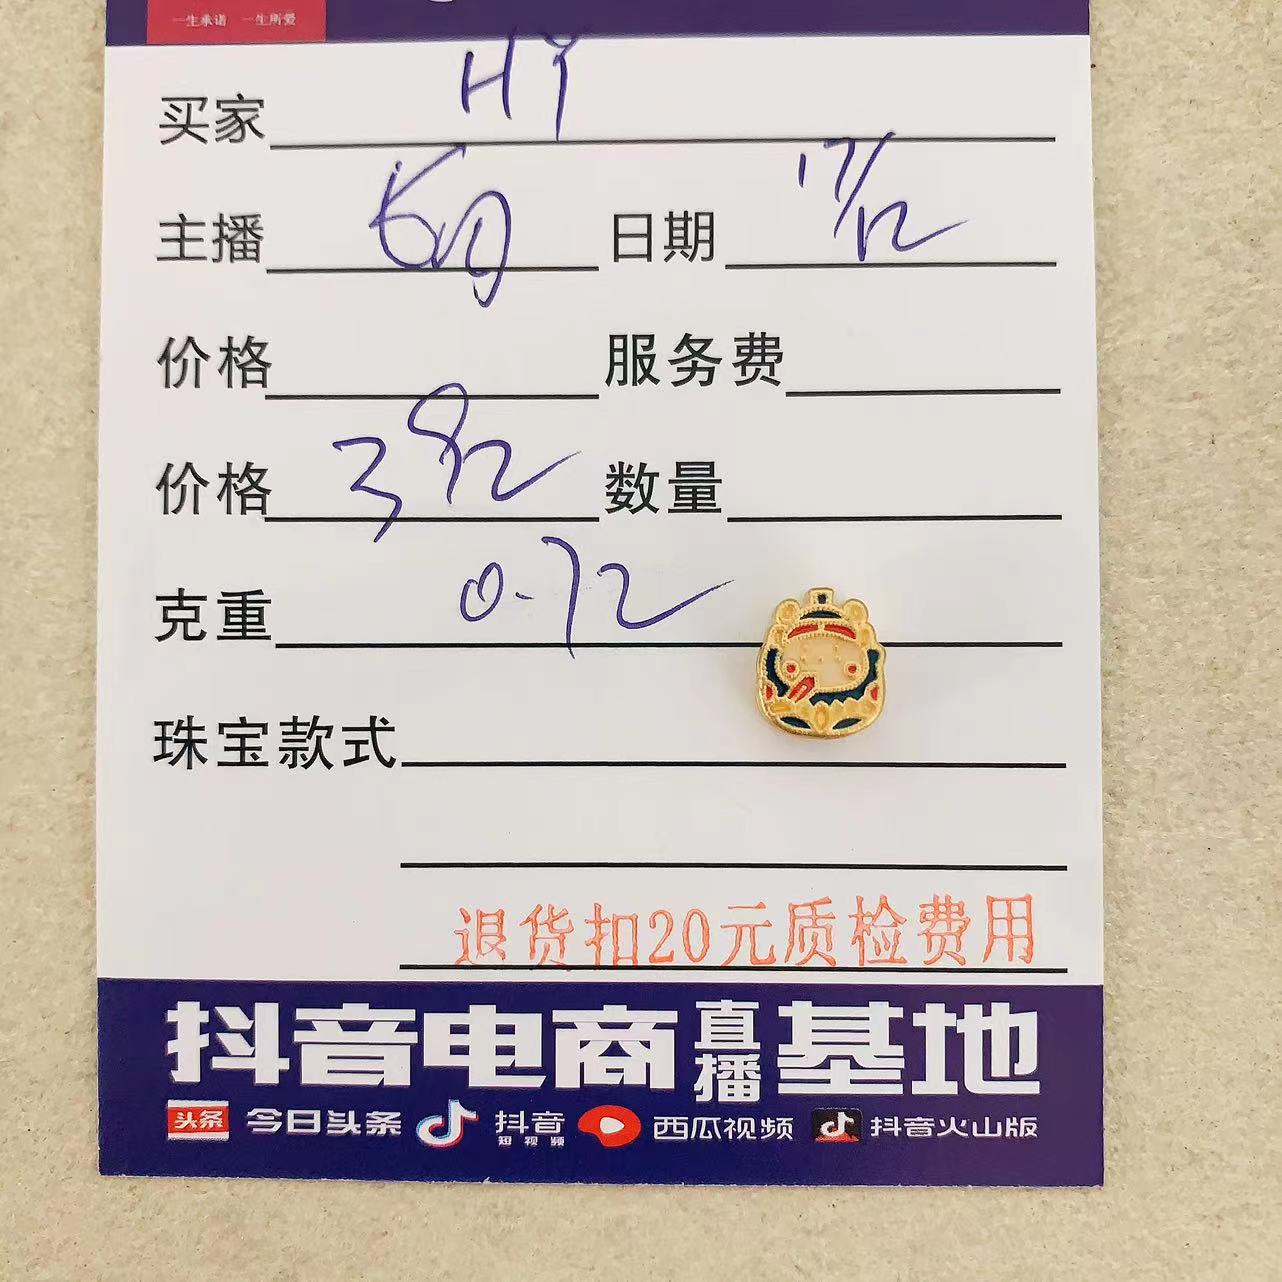 一生承诺 一生所爱
买家 HY
主播 日期 17/12
价格 服务费
价格 392 数量
克重 0.72
珠宝款式
退货扣20元质检费用
抖音电商直播基地
头条 今日头条 抖音短视频 西瓜视频 抖音火山版